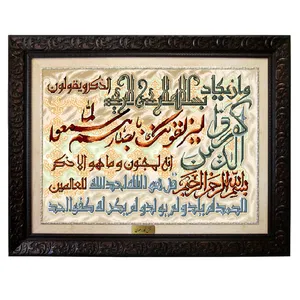 وان يكاد
بسم الله الرحمن الرحيم
الذين كفروا
ليزلقونك بابصارهم لما سمعوا
الذكر ويقولون
انه لمجنون وما هو الا ذكر
للعالمين
بسم الله الرحمن الرحيم
قل هو الله احد الله
الصمد لم يلد ولم يولد ولم يكن له كفوا احد